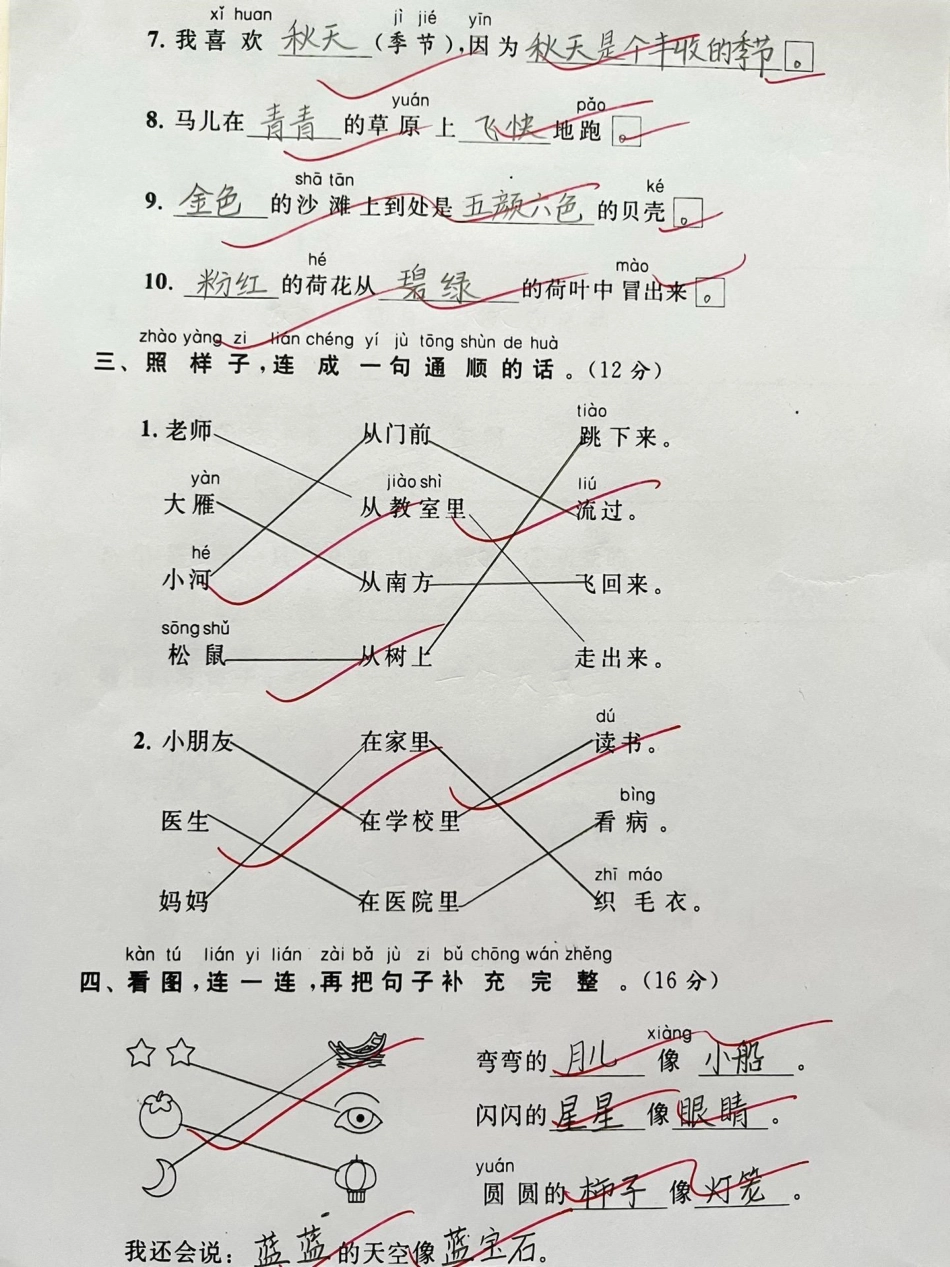 xǐ huan jì jié yīn
7. 我喜欢 秋天 (季节),因为 秋天是个丰收的季节 。
yuán pǎo
8. 马儿在 青青 的草原上 飞快 地跑 。
shā tān ké
9. 金色 的沙滩上到处是 五颜六色 的贝壳 。
hé mào
10. 粉红 的荷花从 碧绿 的荷叶中冒出来 。
zhào yàng zi lián chéng yí jù tōng shùn de huà
三、照样子,连成一句通顺的话。(12分)
tiào
1. 老师 从门前 跳下来。
yàn jiào shì liú
大雁 从教室里 流过。
hé
小河 从南方 飞回来。
sōng shǔ
松鼠 从树上 走出来。
dú
2. 小朋友 在家里 读书。
bìng
医生 在学校里 看病。
zhī máo
妈妈 在医院里 织毛衣。
kàn tú lián yi lián zài bǎ jù zi bǔ chōng wán zhěng
四、看图,连一连,再把句子补充完整。(16分)
xiàng
弯弯的 月儿 像 小船 。
闪闪的 星星 像 眼睛 。
yuán
圆圆的 柿子 像 灯笼 。
我还会说: 蓝蓝 的天空像 蓝宝石。